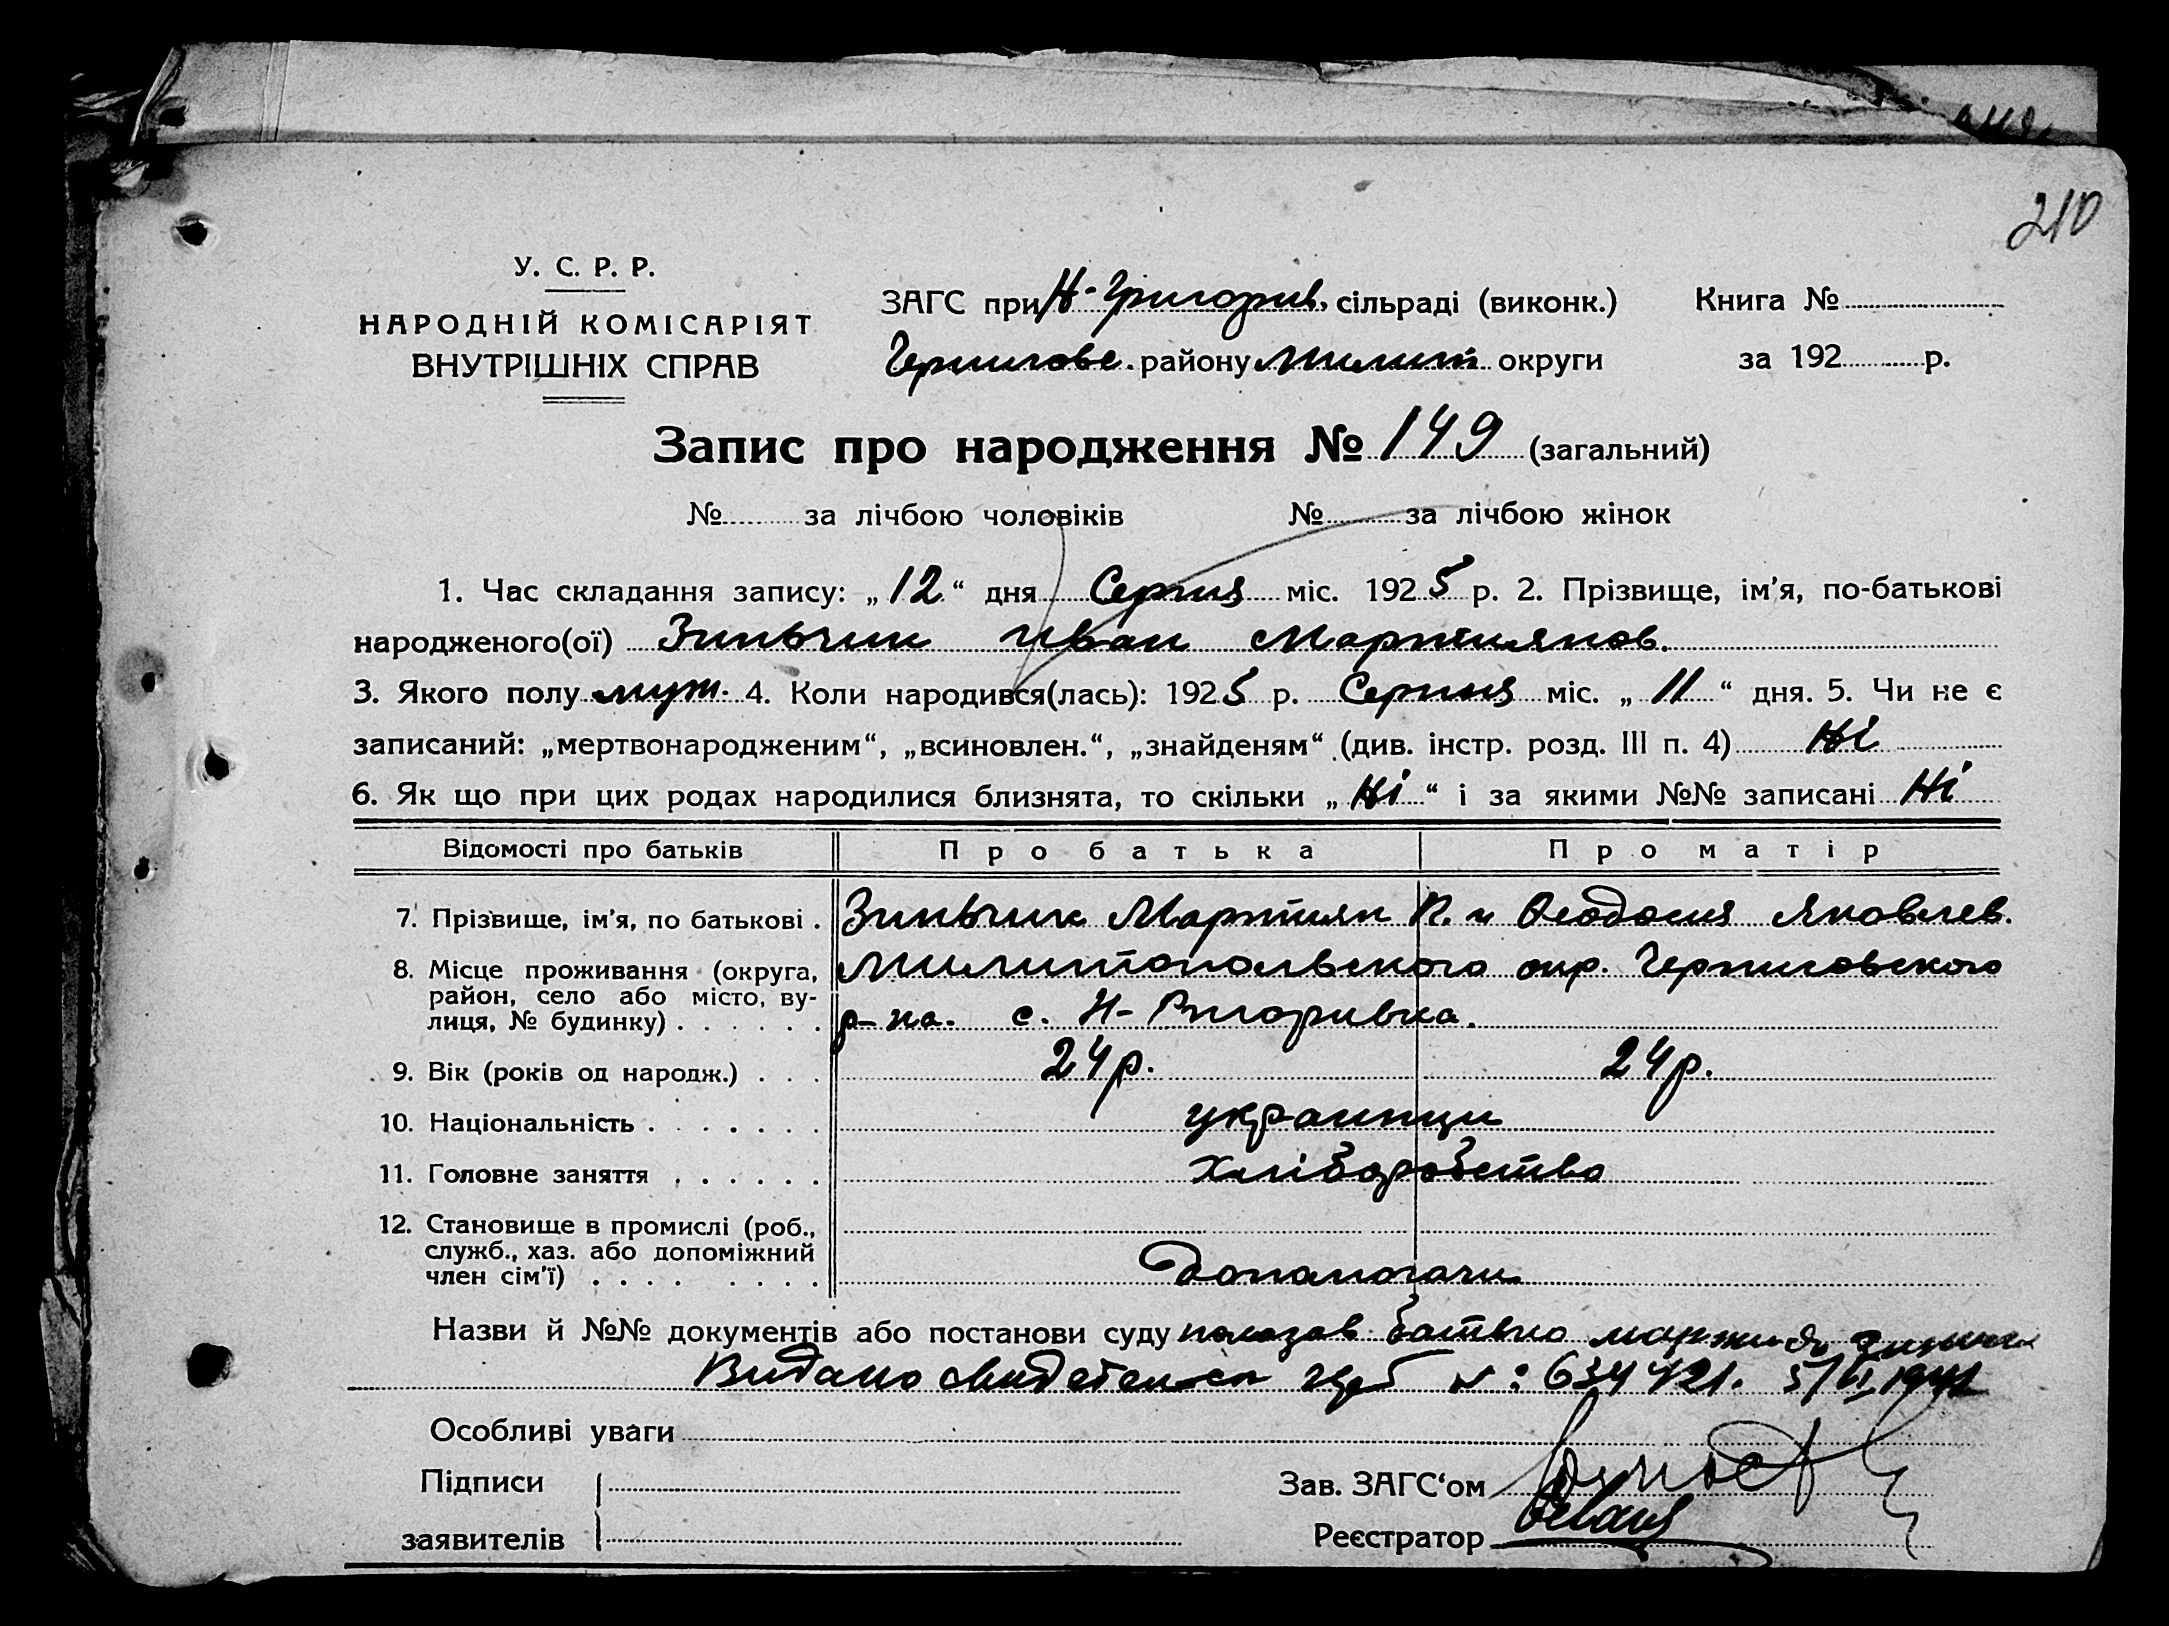 210
У. С. Р. Р.
НАРОДНІЙ КОМІСАРІЯТ
ВНУТРІШНІХ СПРАВ
ЗАГС при Н-Григорив. сільраді (виконк.)
Книга №
Чернигове. району Милит округи
за 192 р.
Запис про народження № 149 (загальний)
№ за лічбою чоловіків № за лічбою жінок
1. Час складання запису: „12“ дня Серпня міс. 1925 р. 2. Прізвище, ім'я, по-батькові
народженого(ої) Зиньчик Иван Мартиянов.
3. Якого полу муж. 4. Коли народився(лась): 1925 р. Серпня міс. „11“ дня. 5. Чи не є
записаний: „мертвонародженим“, „всиновлен.“, „знайденям“ (див. інстр. розд. III п. 4) Ні
6. Як що при цих родах народилися близнята, то скільки „Ні“ і за якими №№ записані Ні
Відомості про батьків Про батька Про матір
7. Прізвище, ім'я, по батькові . Зиньчик Мартиян П. и Феодосия Яковлев.
8. Місце проживання (округа, район, село або місто, вулиця, № будинку) . . . . . . Милитопольского окр. Черниговского
р-на. с. Н-Григоривка.
9. Вік (років од народж.) . . . 24р. 24р.
10. Національність . . . . . . . украинци
11. Головне заняття . . . . . . Хліборобство
12. Становище в промислі (роб., служб., хаз. або допоміжний член сім'ї) . . . . . . . . Допомогачи
Назви й №№ документів або постанови суду показав батько
Видано № 634421. 1941
Особливі уваги
Підписи
заявителів
Зав. ЗАГС'ом
Реєстратор